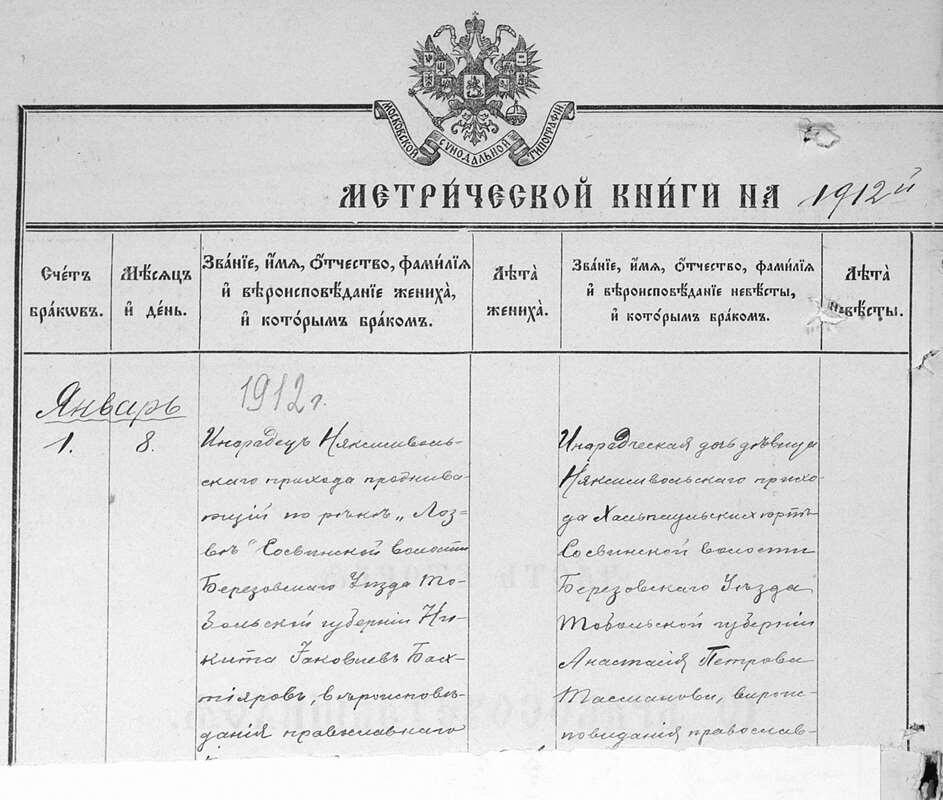 МОСКОВСКОЙ СѴНОДАЛЬНОЙ ТИПОГРАФІИ
МЕТРИ́ЧЕСКОЙ КНИ́ГИ НА 1912й
Сче́тъ бра́кωвъ.
Мѣ́сяцъ и҆ де́нь.
Зва́нїе, и҆́мя, ѻ҆́тчество, фами́лїя и҆ вѣроисповѣ́данїе жениха̀, и҆ кото́рымъ бра́комъ.
Лѣ́та̀ жениха̀.
Зва́нїе, и҆́мя, ѻ҆́тчество, фами́лїя и҆ вѣроисповѣ́данїе невѣ́сты, и҆ кото́рымъ бра́комъ.
Лѣ́та̀ невѣ́сты.
Январь
1912 г.
1.
8.
Инородецъ Няксимволь-
скаго прихода прожива-
ющій по рѣкѣ „Лоз-
вѣ" Сосвинской волости
Березовскаго Уѣзда То-
больской губерніи Ни-
кита Іаковлевъ Бах-
тіяровъ, вѣроисповѣ-
данія православнаго
Инородческая дочь дѣвица
Няксимвольскаго прихо-
да Хальпаульскихъ юртъ
Сосвинской волости
Березовскаго Уѣзда
Тобольской губерніи
Анастасія Петрова
Тасманова, вѣроис-
повѣданія православ-